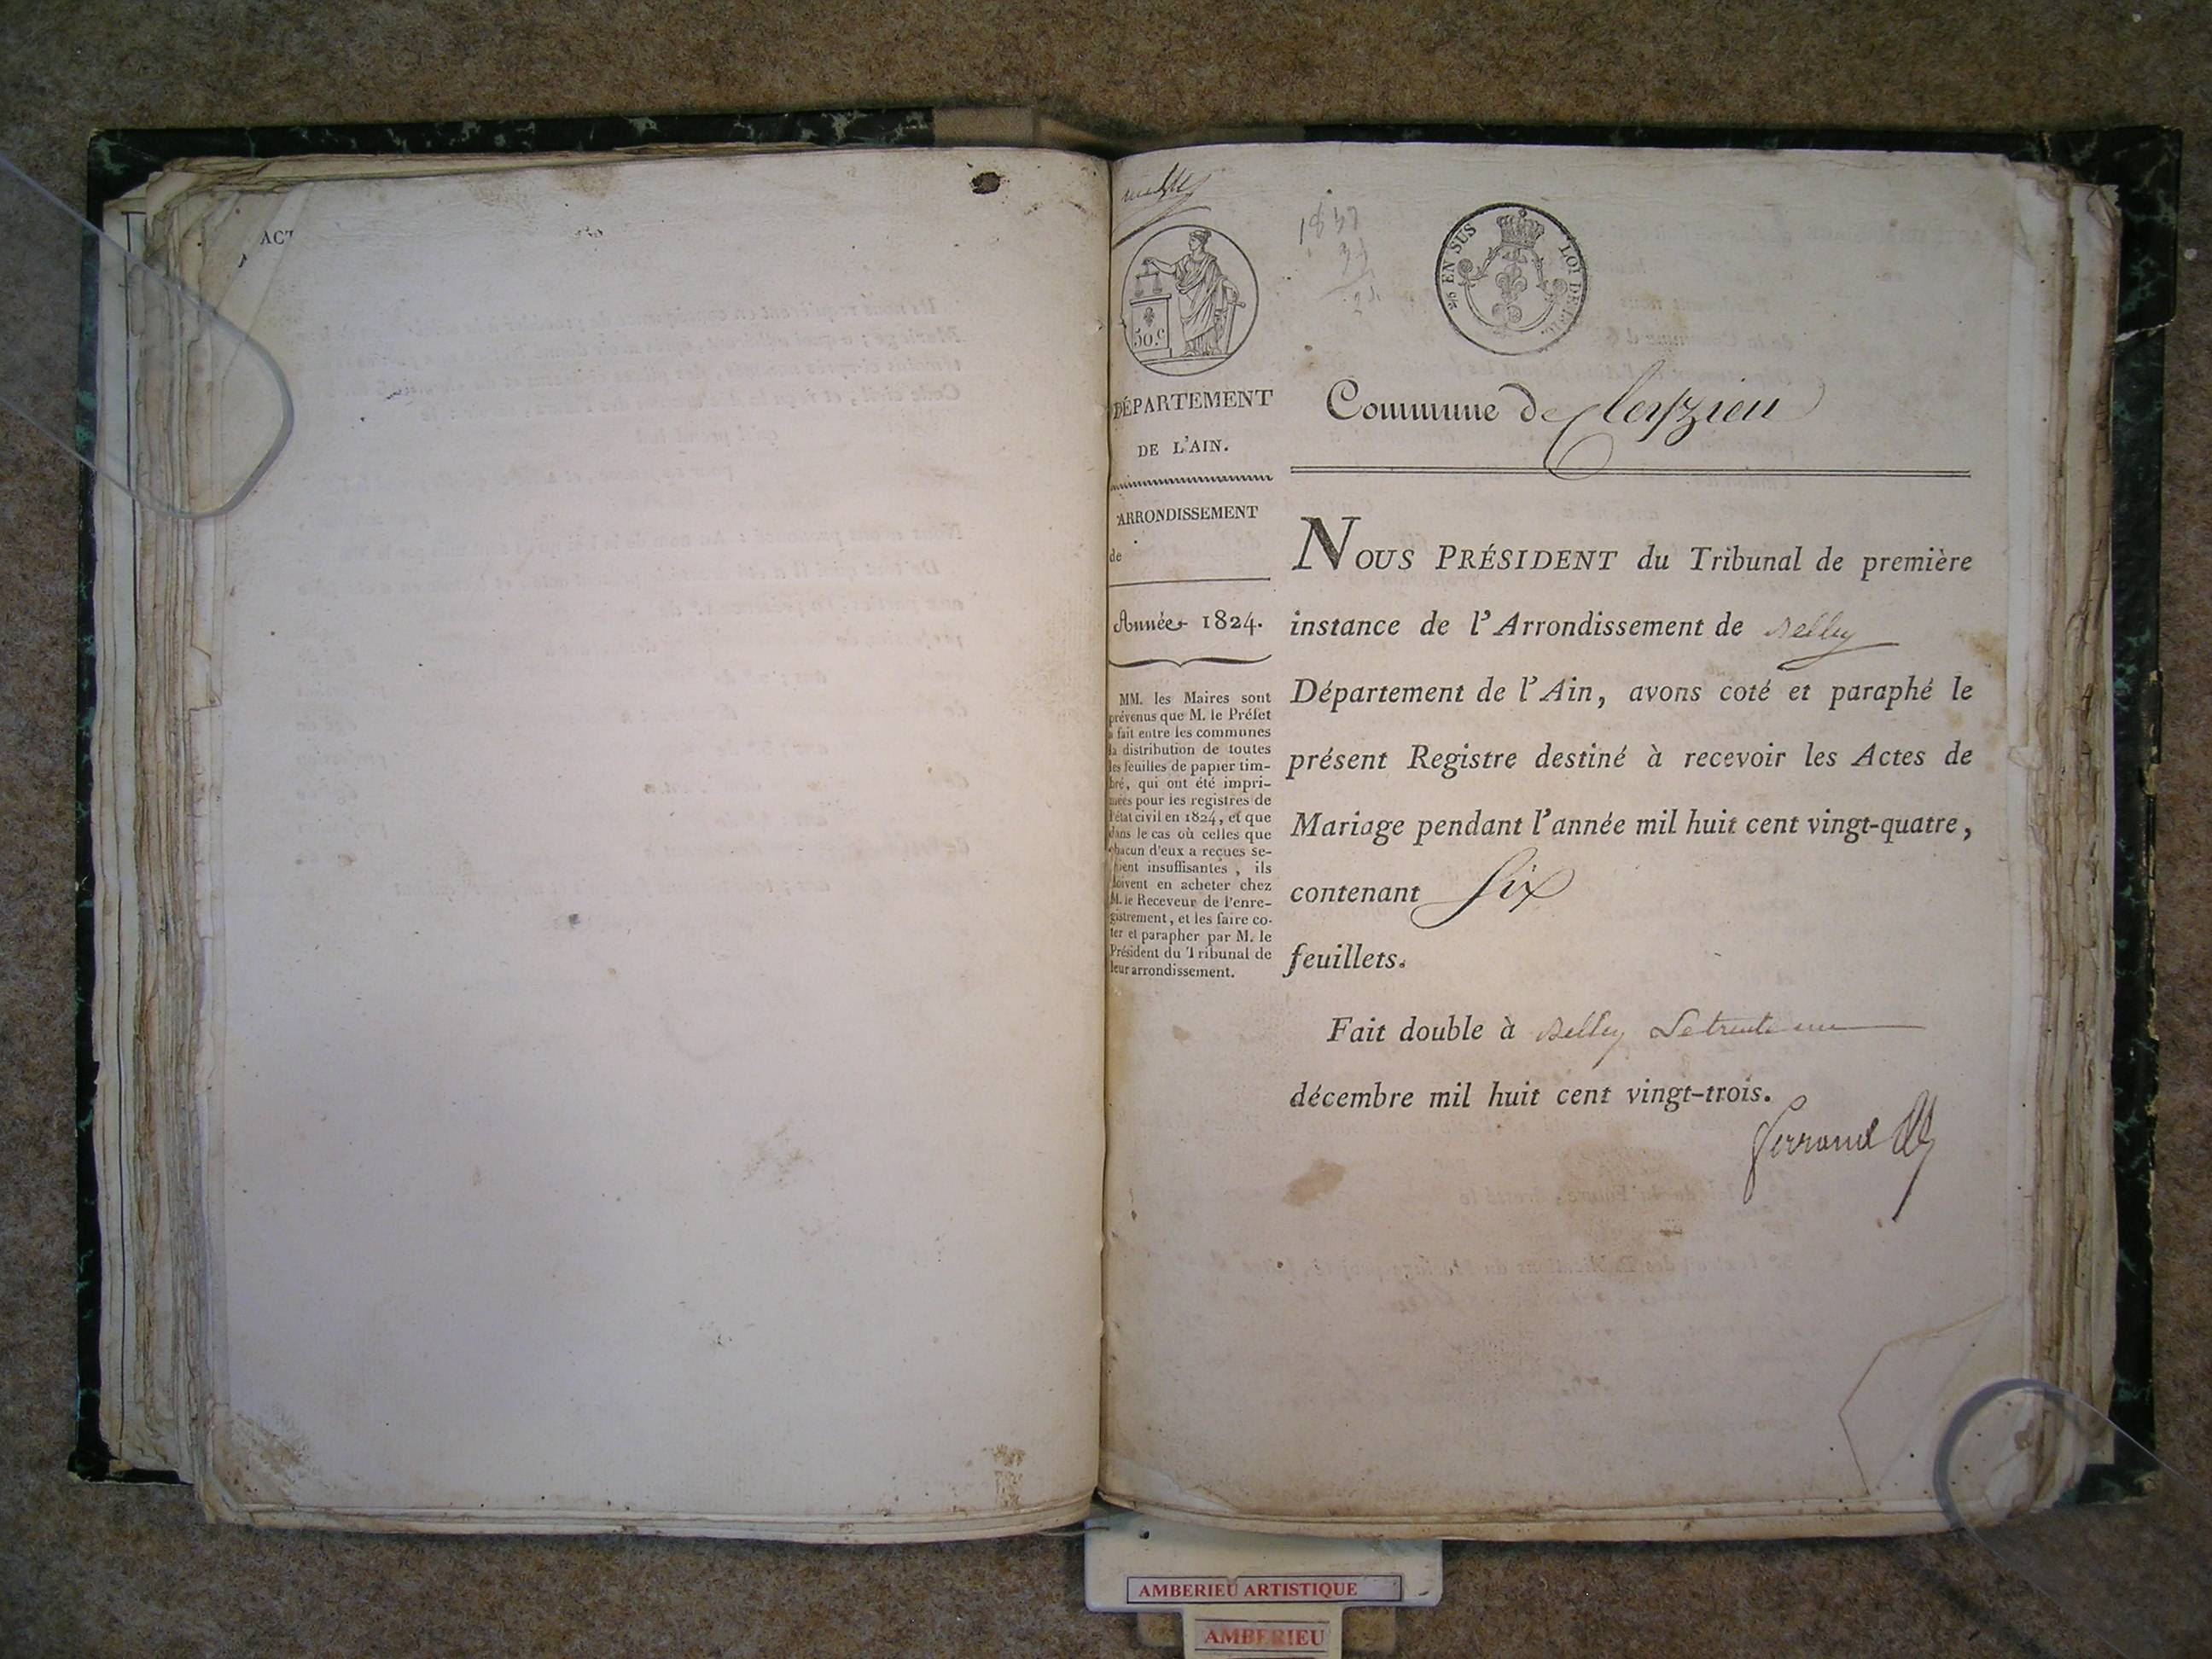 ACT
50.C
EN SUS
LOI DE
DÉPARTEMENT
DE L'AIN.
ARRONDISSEMENT
de
Année 1824.
MM. les Maires sont
prévenus que M. le Préfet
a fait entre les communes
la distribution de toutes
les feuilles de papier tim-
bré, qui ont été impri-
mées pour les registres de
l'état civil en 1824, et que
dans le cas où celles que
chacun d'eux a reçues se-
roient insuffisantes, ils
doivent en acheter chez
M. le Receveur de l'enre-
gistrement, et les faire co-
ter et parapher par M. le
Président du Tribunal de
leur arrondissement.
Commune de Cleyzieu
NOUS PRÉSIDENT du Tribunal de première
instance de l'Arrondissement de Belley
Département de l'Ain, avons coté et paraphé le
présent Registre destiné à recevoir les Actes de
Mariage pendant l'année mil huit cent vingt-quatre,
contenant Six
feuillets.
Fait double à Belley Le trente un
décembre mil huit cent vingt-trois.
AMBERIEU ARTISTIQUE
AMBERIEU